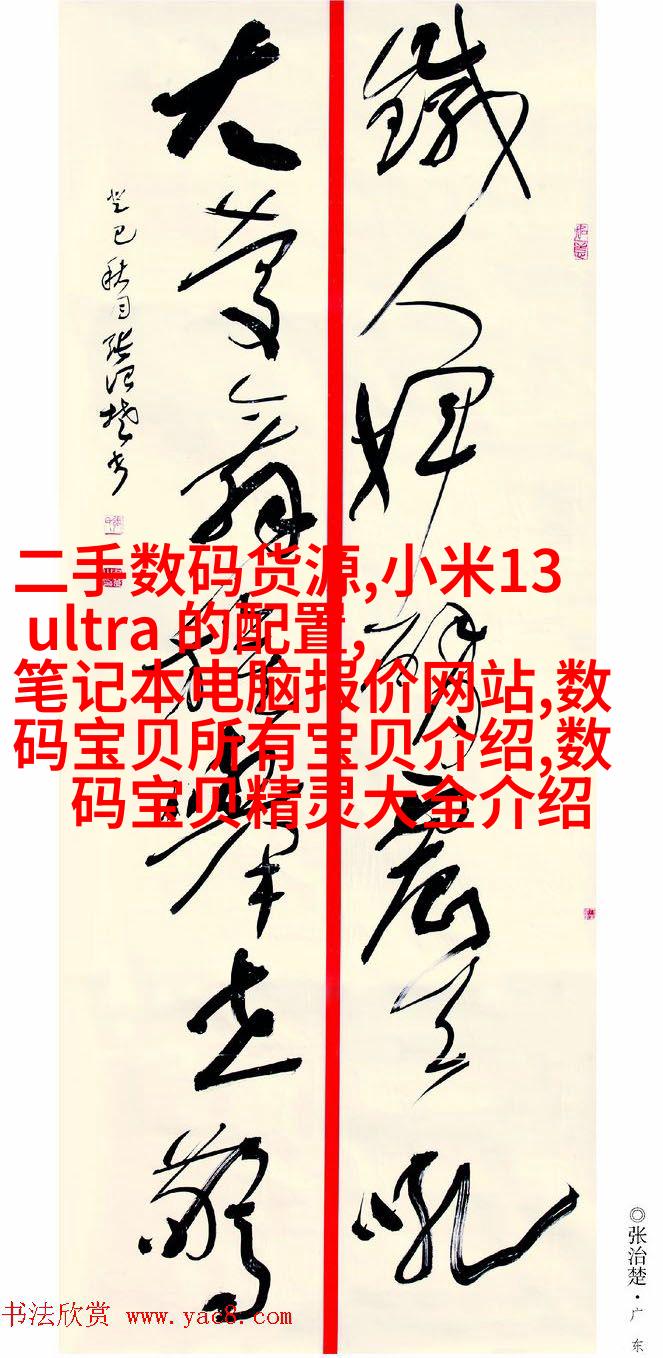 鐵人震天吼
大
癸巳秋月張治楚書
二手数码货源,小米13
ultra 的配置,
笔记本电脑报价网站,数
码宝贝所有宝贝介绍,数
码宝贝精灵大全介绍
◎张治楚·广东
书法欣赏 www.yac8.com